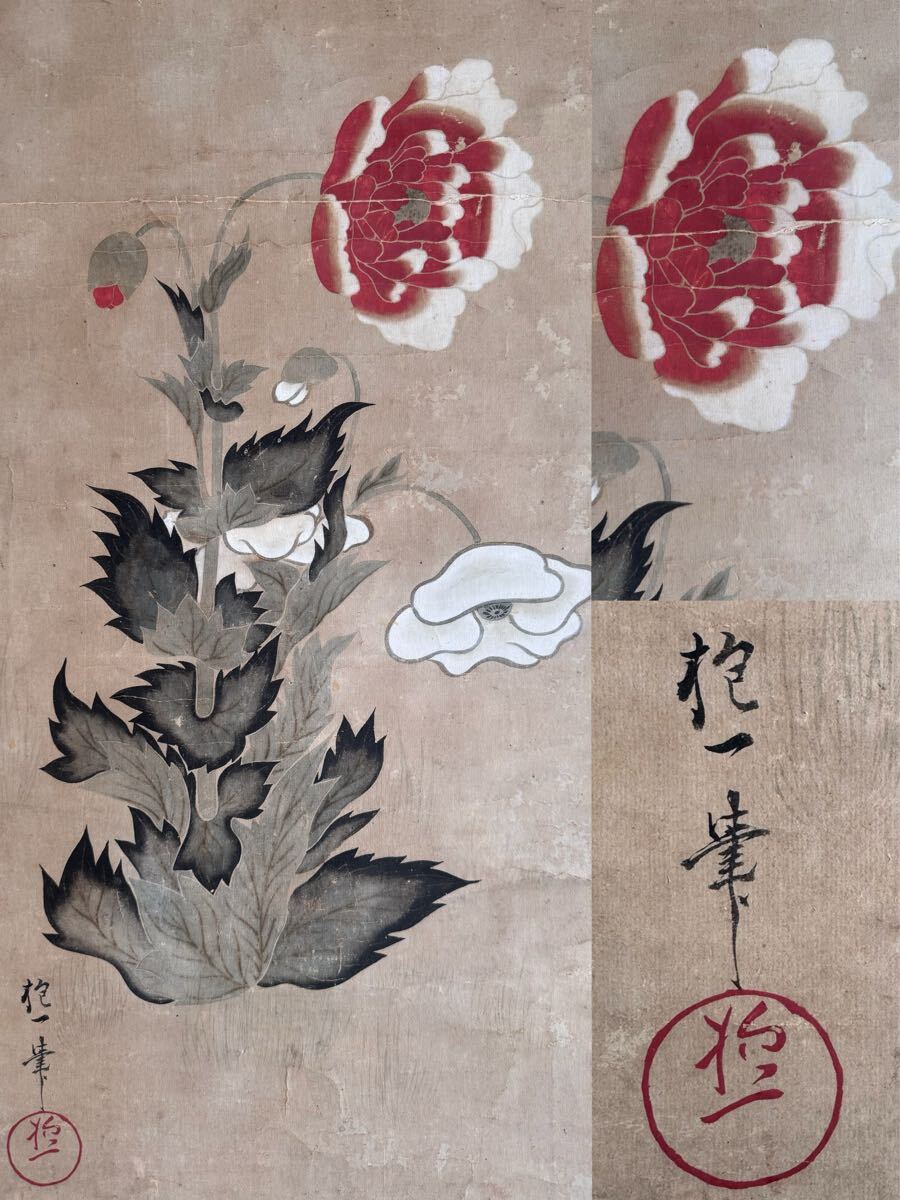 抱一筆
抱一
抱一筆
抱一